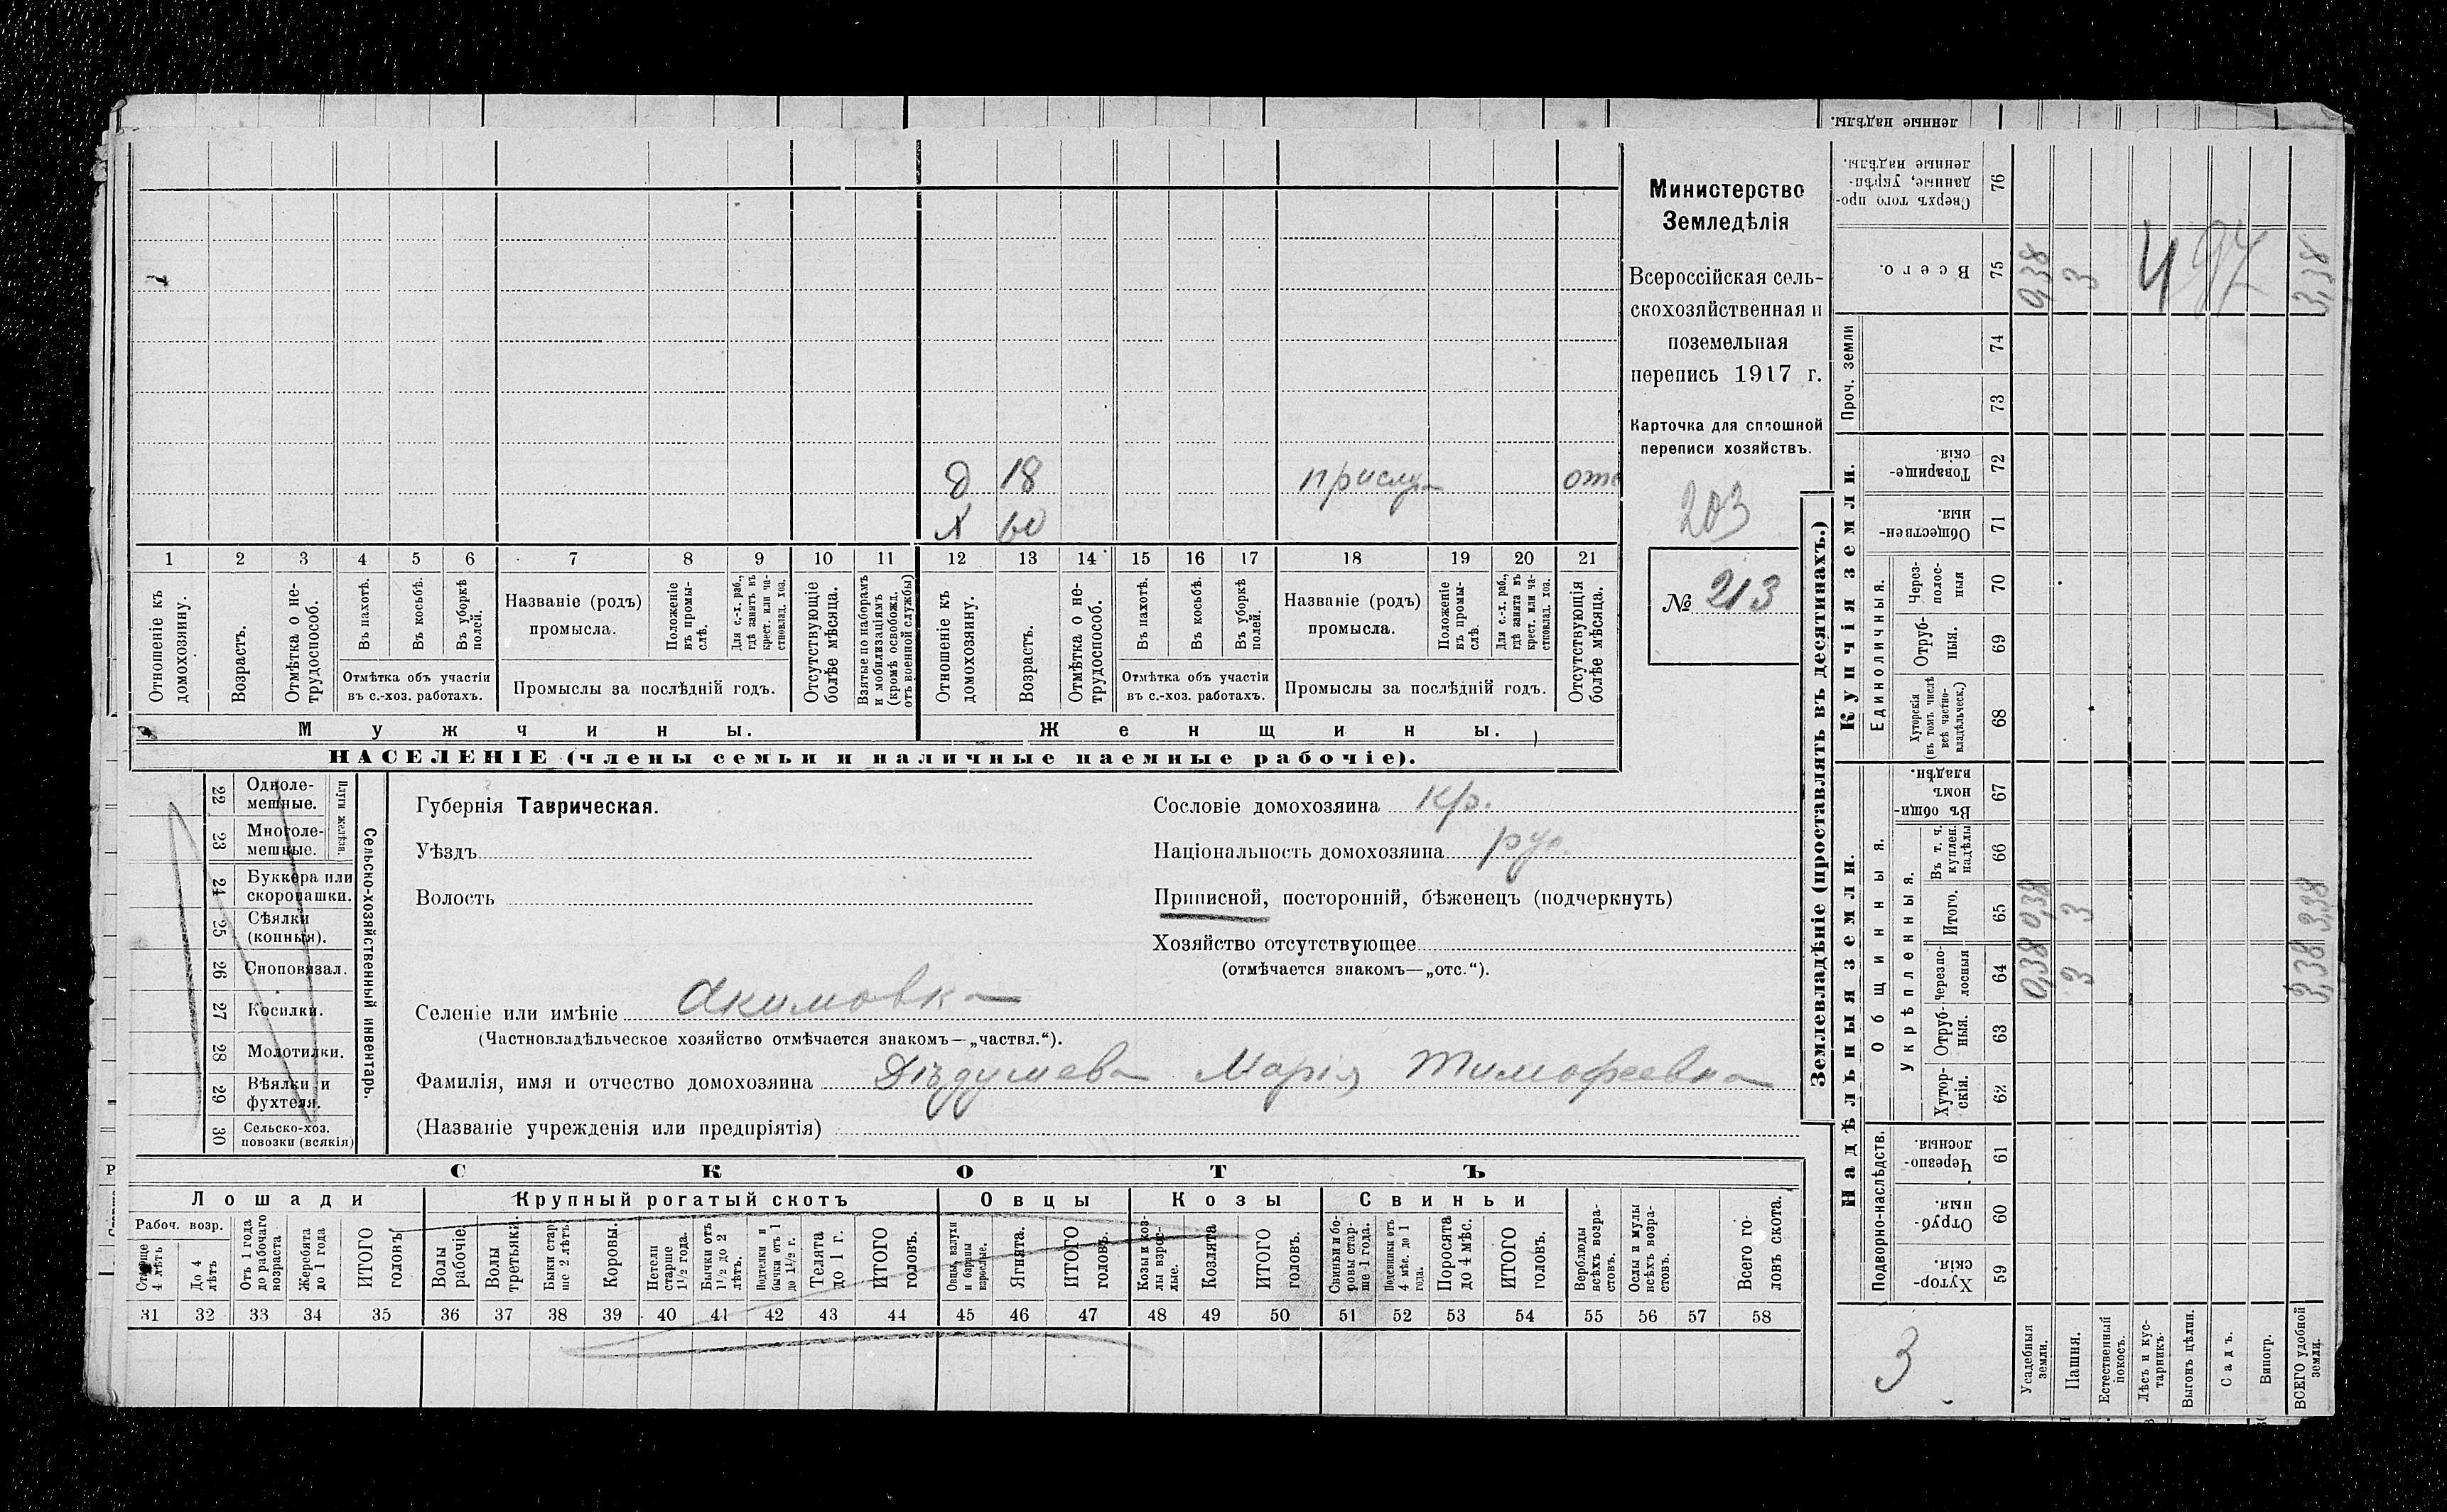 д 18 прислу отс
х 60
1 2 3 4 5 6 7 8 9 10 11 12 13 14 15 16 17 18 19 20 21
Отношеніе къ домохозяину.
Возрастъ.
Отмѣтка о не-трудоспособ.
Въ пахотѣ.
Въ косьбѣ.
Въ уборкѣ полей.
Отмѣтка объ участіи
въ с.-хоз. работахъ.
Названіе (родъ)
промысла.
Положеніе въ промы-слѣ.
Для с.-х. раб., гдѣ занятъ въ крест. или ча-стновлад. хоз.
Промыслы за послѣдній годъ.
Отсутствующіе болѣе мѣсяца.
Взятые по наборамъ и мобилизаціямъ (кромѣ освобожд. отъ военной службы)
Отношеніе къ домохозяину.
Возрастъ.
Отмѣтка о не-трудоспособ.
Въ пахотѣ.
Въ косьбѣ.
Въ уборкѣ полей.
Отмѣтка объ участіи
въ с.-хоз. работахъ.
Названіе (родъ)
промысла.
Положеніе въ промы-слѣ.
Для с.-х. раб., гдѣ занята въ крест. или ча-стновлад. хоз.
Промыслы за послѣдній годъ.
Отсутствующія болѣе мѣсяца.
Мужчины.
Женщины.
НАСЕЛЕНІЕ (члены семьи и наличные наемные рабочіе).
Министерство
Земледѣлія
Всероссійская сель-
скохозяйственная и
поземельная
перепись 1917 г.
Карточка для сплошной
переписи хозяйствъ.
203
№ 213
22 Одноле-мешные.
23 Многоле-мешные.
Плуги желѣзн.
24 Буккера или скоропашки.
25 Сѣялки (конныя).
26 Сноповязал.
27 Косилки.
28 Молотилки.
29 Вѣялки и фухтеля.
30 Сельско-хоз. повозки (всякія)
Сельско-хозяйственный инвентарь.
Губернія Таврическая.
Уѣздъ
Волость
Сословіе домохозяина кр.
Національность домохозяина рус.
Приписной, посторонній, бѣженецъ (подчеркнуть)
Хозяйство отсутствующее
(отмѣчается знакомъ—„отс.“).
Селеніе или имѣніе Акимовка
(Частновладѣльческое хозяйство отмѣчается знакомъ—„частвл.“).
Фамилія, имя и отчество домохозяина Дѣдушева Марія Тимофеевна
(Названіе учрежденія или предпріятія)
СКОТЪ
Лошади
Крупный рогатый скотъ
Овцы
Козы
Свиньи
Рабоч. возр.
Старше 4 лѣтъ
До 4 лѣтъ
Отъ 1 года до рабочаго возраста
Жеребята до 1 года
ИТОГО головъ.
Волы рабочіе.
Волы третьяки.
Быки стар-ше 2 лѣтъ.
Коровы.
Нетели старше 1 1/2 года.
Бычки отъ 1 1/2 до 2 лѣтъ.
Подтелки и бычки отъ 1 до 1 1/2 г.
Телята до 1 г.
ИТОГО головъ.
Овцы, валухи и бараны взрослые.
Ягнята.
ИТОГО головъ.
Козы и коз-лы взрос-лые.
Козлята
ИТОГО головъ.
Свиньи и бо-ровы стар-ше 1 года.
Подсвинки отъ 4 мѣс. до 1 года.
Поросята до 4 мѣс.
ИТОГО головъ.
Верблюды всѣхъ возра-стовъ.
Ослы и мулы всѣхъ возра-стовъ.
Всего го-ловъ скота.
31 32 33 34 35 36 37 38 39 40 41 42 43 44 45 46 47 48 49 50 51 52 53 54 55 56 57 58
Землевладѣніе (проставлять въ десятинахъ.)
ленные надѣлы.
Сверхъ того про-данные, укрѣп-ленные надѣлы. 76
Всего. 75 0,38 3 3,38
4 97
Проч. земли
74
73
Купчія земли.
Товарище-скія. 72
Обществен-ныя. 71
Единоличныя.
Через-полос-ныя 70
Отруб-ныя. 69
Хуторскія (въ томъ числѣ всѣ частно-владѣльческ.) 68
Надѣльныя земли.
Общинныя.
Въ общи-номъ владѣн. 67
Укрѣпленныя.
Въ т. ч. куплен. надѣлы 66
Итого. 65 0,38 3 3,38
Черезпо-лосныя 64 0,38 3 3,38
Отруб-ныя. 63
Хутор-скія. 62
Подворно-наслѣдств.
Черезпо-лосныя. 61
Отруб-ныя. 60
Хутор-скія. 59
3
Усадебныя земли.
Пашня.
Естественный покосъ.
Лѣсъ и кус-тарникъ.
Выгонъ цѣлин.
Садъ.
Виногр.
ВСЕГО удобной земли.